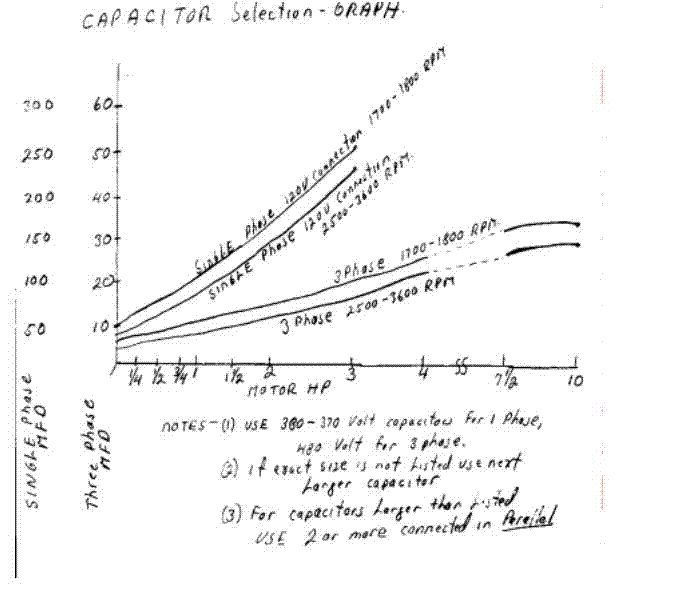 CAPACITOR Selection - GRAPH.
300
250
200
150
100
50
SINGLE Phase
MFD
60
50
40
30
20
10
Three Phase
MFD
SINGLE Phase 120V Connection 1700-1800 RPM
SINGLE Phase 120V Connection
2500-3600 RPM.
3 Phase 1700-1800 RPM.
3 Phase 2500-3600 RPM
1/4 1/2 3/4 1 1 1/2 2 3 4 5.5 7 1/2 10
MOTOR HP
NOTES - (1) USE 360-370 Volt capacitors For 1 Phase,
480 Volt for 3 phase.
(2) if exact size is not Listed use next
Larger capacitor
(3) For capacitors Larger than Listed
USE 2 or more connected in Perallal